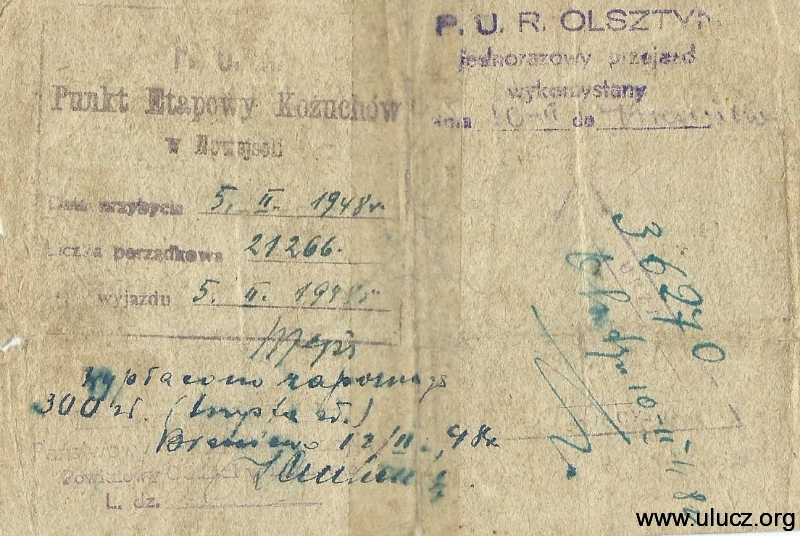 P. U. R.
Punkt Etapowy Kożuchów
w Nowejsoli
przybycia 5. II. 1948r
Liczba porządkowa 21266.
wyjazdu 5. II. 1948r
Wypłacono zapomogę
300 zł. (trzysta zł.)
Braniewo 12/II. 48r
Powiatowy
L. dz.
P. U. R. OLSZTYN
jednorazowy przejazd
wykorzystany
dnia 10-II do
36270
10-II-48
www.ulucz.org